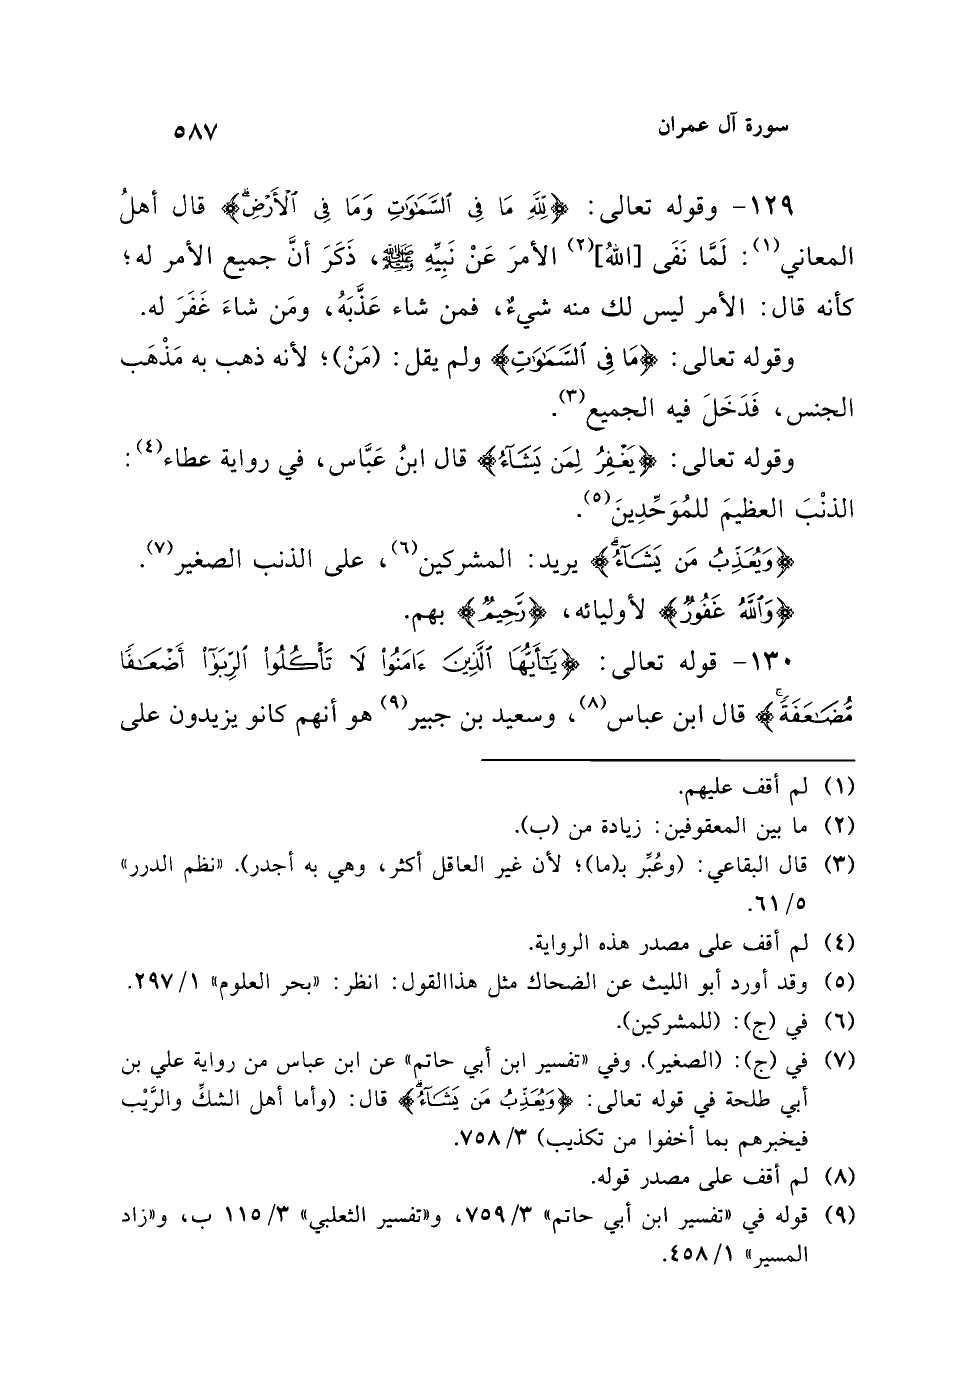 سورة آل عمران ٥٨٧
١٢٩- وقوله تعالى: ﴿لِلَّهِ مَا فِي السَّمَٰوَٰتِ وَمَا فِي ٱلْأَرْضِۚ﴾ قال أهلُ
المعاني(١): لَمَّا نَفَى [اللهُ](٢) الأمرَ عَنْ نَبِيِّهِ ﷺ، ذَكَرَ أنَّ جميع الأمر له؛
كأنه قال: الأمر ليس لك منه شيءٌ، فمن شاء عَذَّبَهُ، ومَن شاءَ غَفَرَ له.
وقوله تعالى: ﴿مَا فِي ٱلسَّمَٰوَٰتِ﴾ ولم يقل: (مَنْ)؛ لأنه ذهب به مَذْهَب
الجنس، فَدَخَلَ فيه الجميع(٣).
وقوله تعالى: ﴿يَغْفِرُ لِمَن يَشَآءُ﴾ قال ابنُ عَبَّاس، في رواية عطاء(٤):
الذنْبَ العظيمَ للمُوَحِّدِينَ(٥).
﴿وَيُعَذِّبُ مَن يَشَآءُۗ﴾ يريد: المشركين(٦)، على الذنب الصغير(٧).
﴿وَٱللَّهُ غَفُورٌ﴾ لأوليائه، ﴿رَّحِيمٌ﴾ بهم.
١٣٠- قوله تعالى: ﴿يَٰٓأَيُّهَا ٱلَّذِينَ ءَامَنُواْ لَا تَأْكُلُواْ ٱلرِّبَوٰٓاْ أَضْعَٰفًا
مُّضَٰعَفَةًۖ﴾ قال ابن عباس(٨)، وسعيد بن جبير(٩) هو أنهم كانو يزيدون على
(١) لم أقف عليهم.
(٢) ما بين المعقوفين: زيادة من (ب).
(٣) قال البقاعي: (وعُبِّر بـ(ما)؛ لأن غير العاقل أكثر، وهي به أجدر). «نظم الدرر»
٥/ ٦١.
(٤) لم أقف على مصدر هذه الرواية.
(٥) وقد أورد أبو الليث عن الضحاك مثل هذاالقول: انظر: «بحر العلوم» ١/ ٢٩٧.
(٦) في (ج): (للمشركين).
(٧) في (ج): (الصغير). وفي «تفسير ابن أبي حاتم» عن ابن عباس من رواية علي بن
أبي طلحة في قوله تعالى: ﴿وَيُعَذِّبُ مَن يَشَآءُۗ﴾ قال: (وأما أهل الشكِّ والرَّيْب
فيخبرهم بما أخفوا من تكذيب) ٣/ ٧٥٨.
(٨) لم أقف على مصدر قوله.
(٩) قوله في «تفسير ابن أبي حاتم» ٣/ ٧٥٩، و«تفسير الثعلبي» ٣/ ١١٥ ب، و«زاد
المسير» ١/ ٤٥٨.